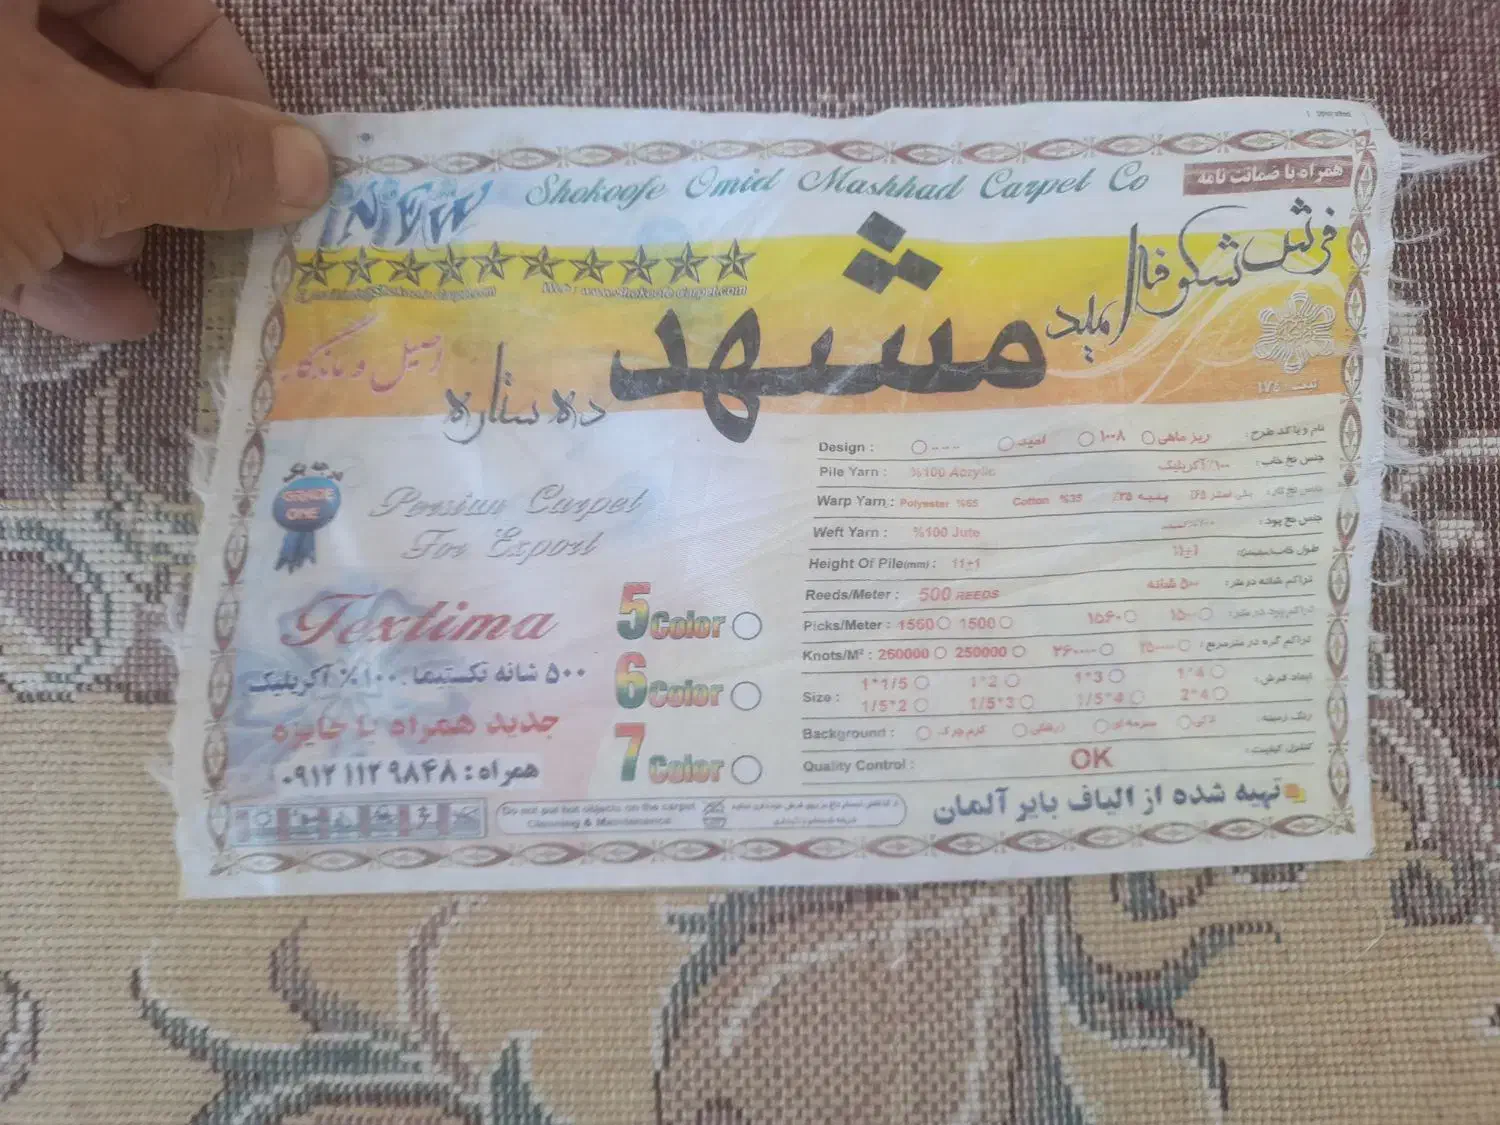 Shokoofe Omid Mashhad Carpet Co
همراه با ضمانت نامه
NEW
فرش شکوفه امید
مشهد
ده ستاره
اصیل و ماندگار
Web : www.Shokoofe-Carpet.com
ثبت : ١٧٤
GRADE ONE
Persian Carpet
For Export
Textima
۵۰۰ شانه تکستیما ۱۰۰٪ آکریلیک
جدید همراه با جایزه
همراه : ۰۹۱۲ ۱۱۲ ۹۸۴۸
5 Color
6 Color
7 Color
Design : --- امید ۱۰۰۸ ریز ماهی نام و یا کد طرح:
Pile Yarn : %100 Acrylic ۱۰۰٪ آکریلیک جنس نخ خاب:
Warp Yarn : Polyester %65 Cotton %35 پنبه ۳۵٪ پلی استر ۶۵٪ جنس نخ تار:
Weft Yarn : %100 Jute جنس نخ پود:
Height Of Pile(mm) : 11±1 11±1
Reeds/Meter : 500 REEDS ۵۰۰ شانه تراکم شانه در متر:
Picks/Meter : 1560 1500 ۱۵۶۰ ۱۵۰۰ تراکم پود در متر:
Knots/M² : 260000 250000 ۲۶۰۰۰۰ ۲۵۰۰۰۰ تراکم گره در مترمربع:
Size : 1*1/5 1*2 1*3 1*4 ابعاد فرش:
1/5*2 1/5*3 1/5*4 2*4
Background : کرم چرک زرشکی سرمه ای لاکی رنگ زمینه:
Quality Control : OK کنترل کیفیت:
Do not put hot objects on the carpet
Cleaning & Maintenance
تهیه شده از الیاف بایر آلمان